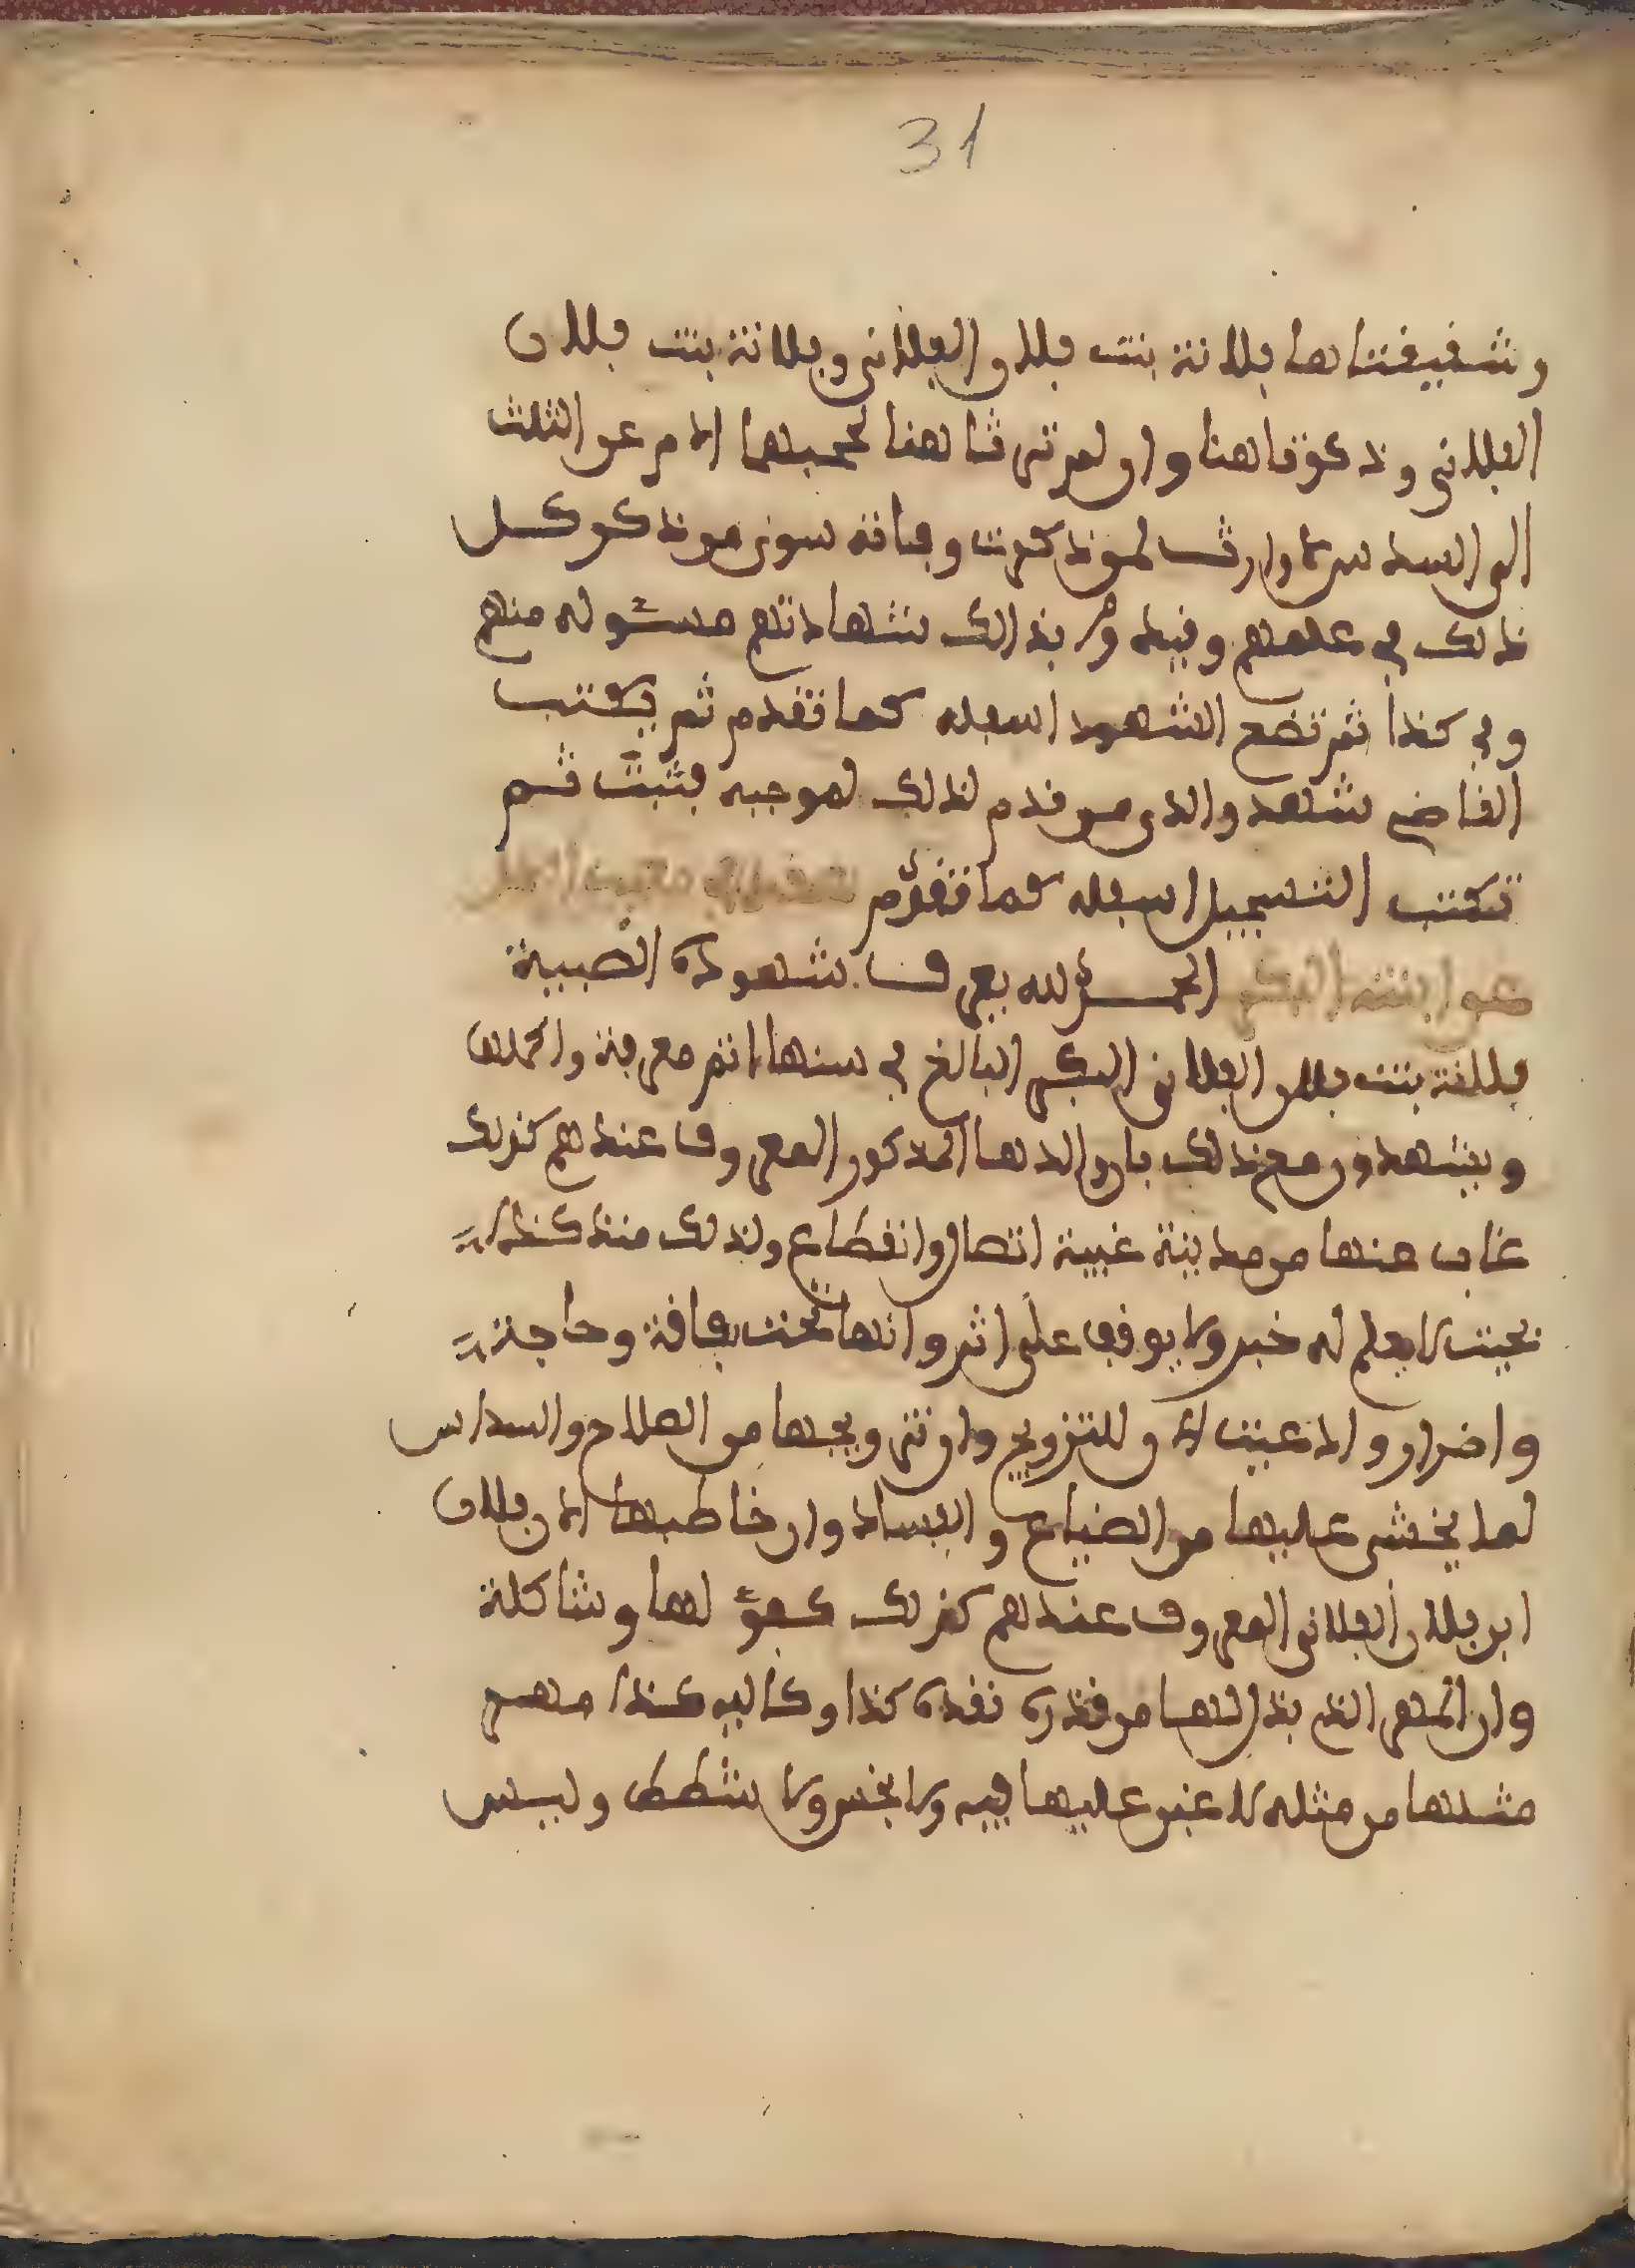 31
وشفيقتاها فلانة بنت فلان الفلاني وفلانة بنت فلان
الفلاني وتذكرتا هنا وان لم ترثا هنا لحجبهما الام عن الثلث
الى السدس لا وارث لمن ذكرت وفاته سوى من ذكر كل
ذلك في علمهم وقيد بذالك شهادتهم مسئولة منهم
وفي كذا ثم تضع الشهود اسفله كما تقدم ثم يكتب
القاضي شهد والذي من قدم لذلك لموجبه فثبت ثم
تكتب التسجيل اسفله كما تقدم
عن ابنته البكر الحمد لله يعرف شهوده الصبية
فلانة بنت فلان الفلاني البكر البالغ في سنها اتم معرفة واكملها
ويشهدون مع ذلك بان والدها المذكور المعروف عندهم كذلك
غاب عنها من مدينة غيبة اتصال وانقطاع ولذلك منذ كذا
بحيث لا يعلم له خبر ولا يوقف على اثر وانها تحت فاقة وحاجة
واضرار والا عينت لان للتزويج وان تزويجها من الصلاح والسداس
لما يخشى عليها من الضياع والفساد وان خاطبها الان فلان
ابن فلان الفلاني المعروف عندهم كذلك كفؤ لها وشاكلة
وان المهر الذي بذل لها من قدره نقده كذا وكاليه كذا مهر
مثلها من مثله لا غبن عليها فيه ولا بخس ولا شطط وليس